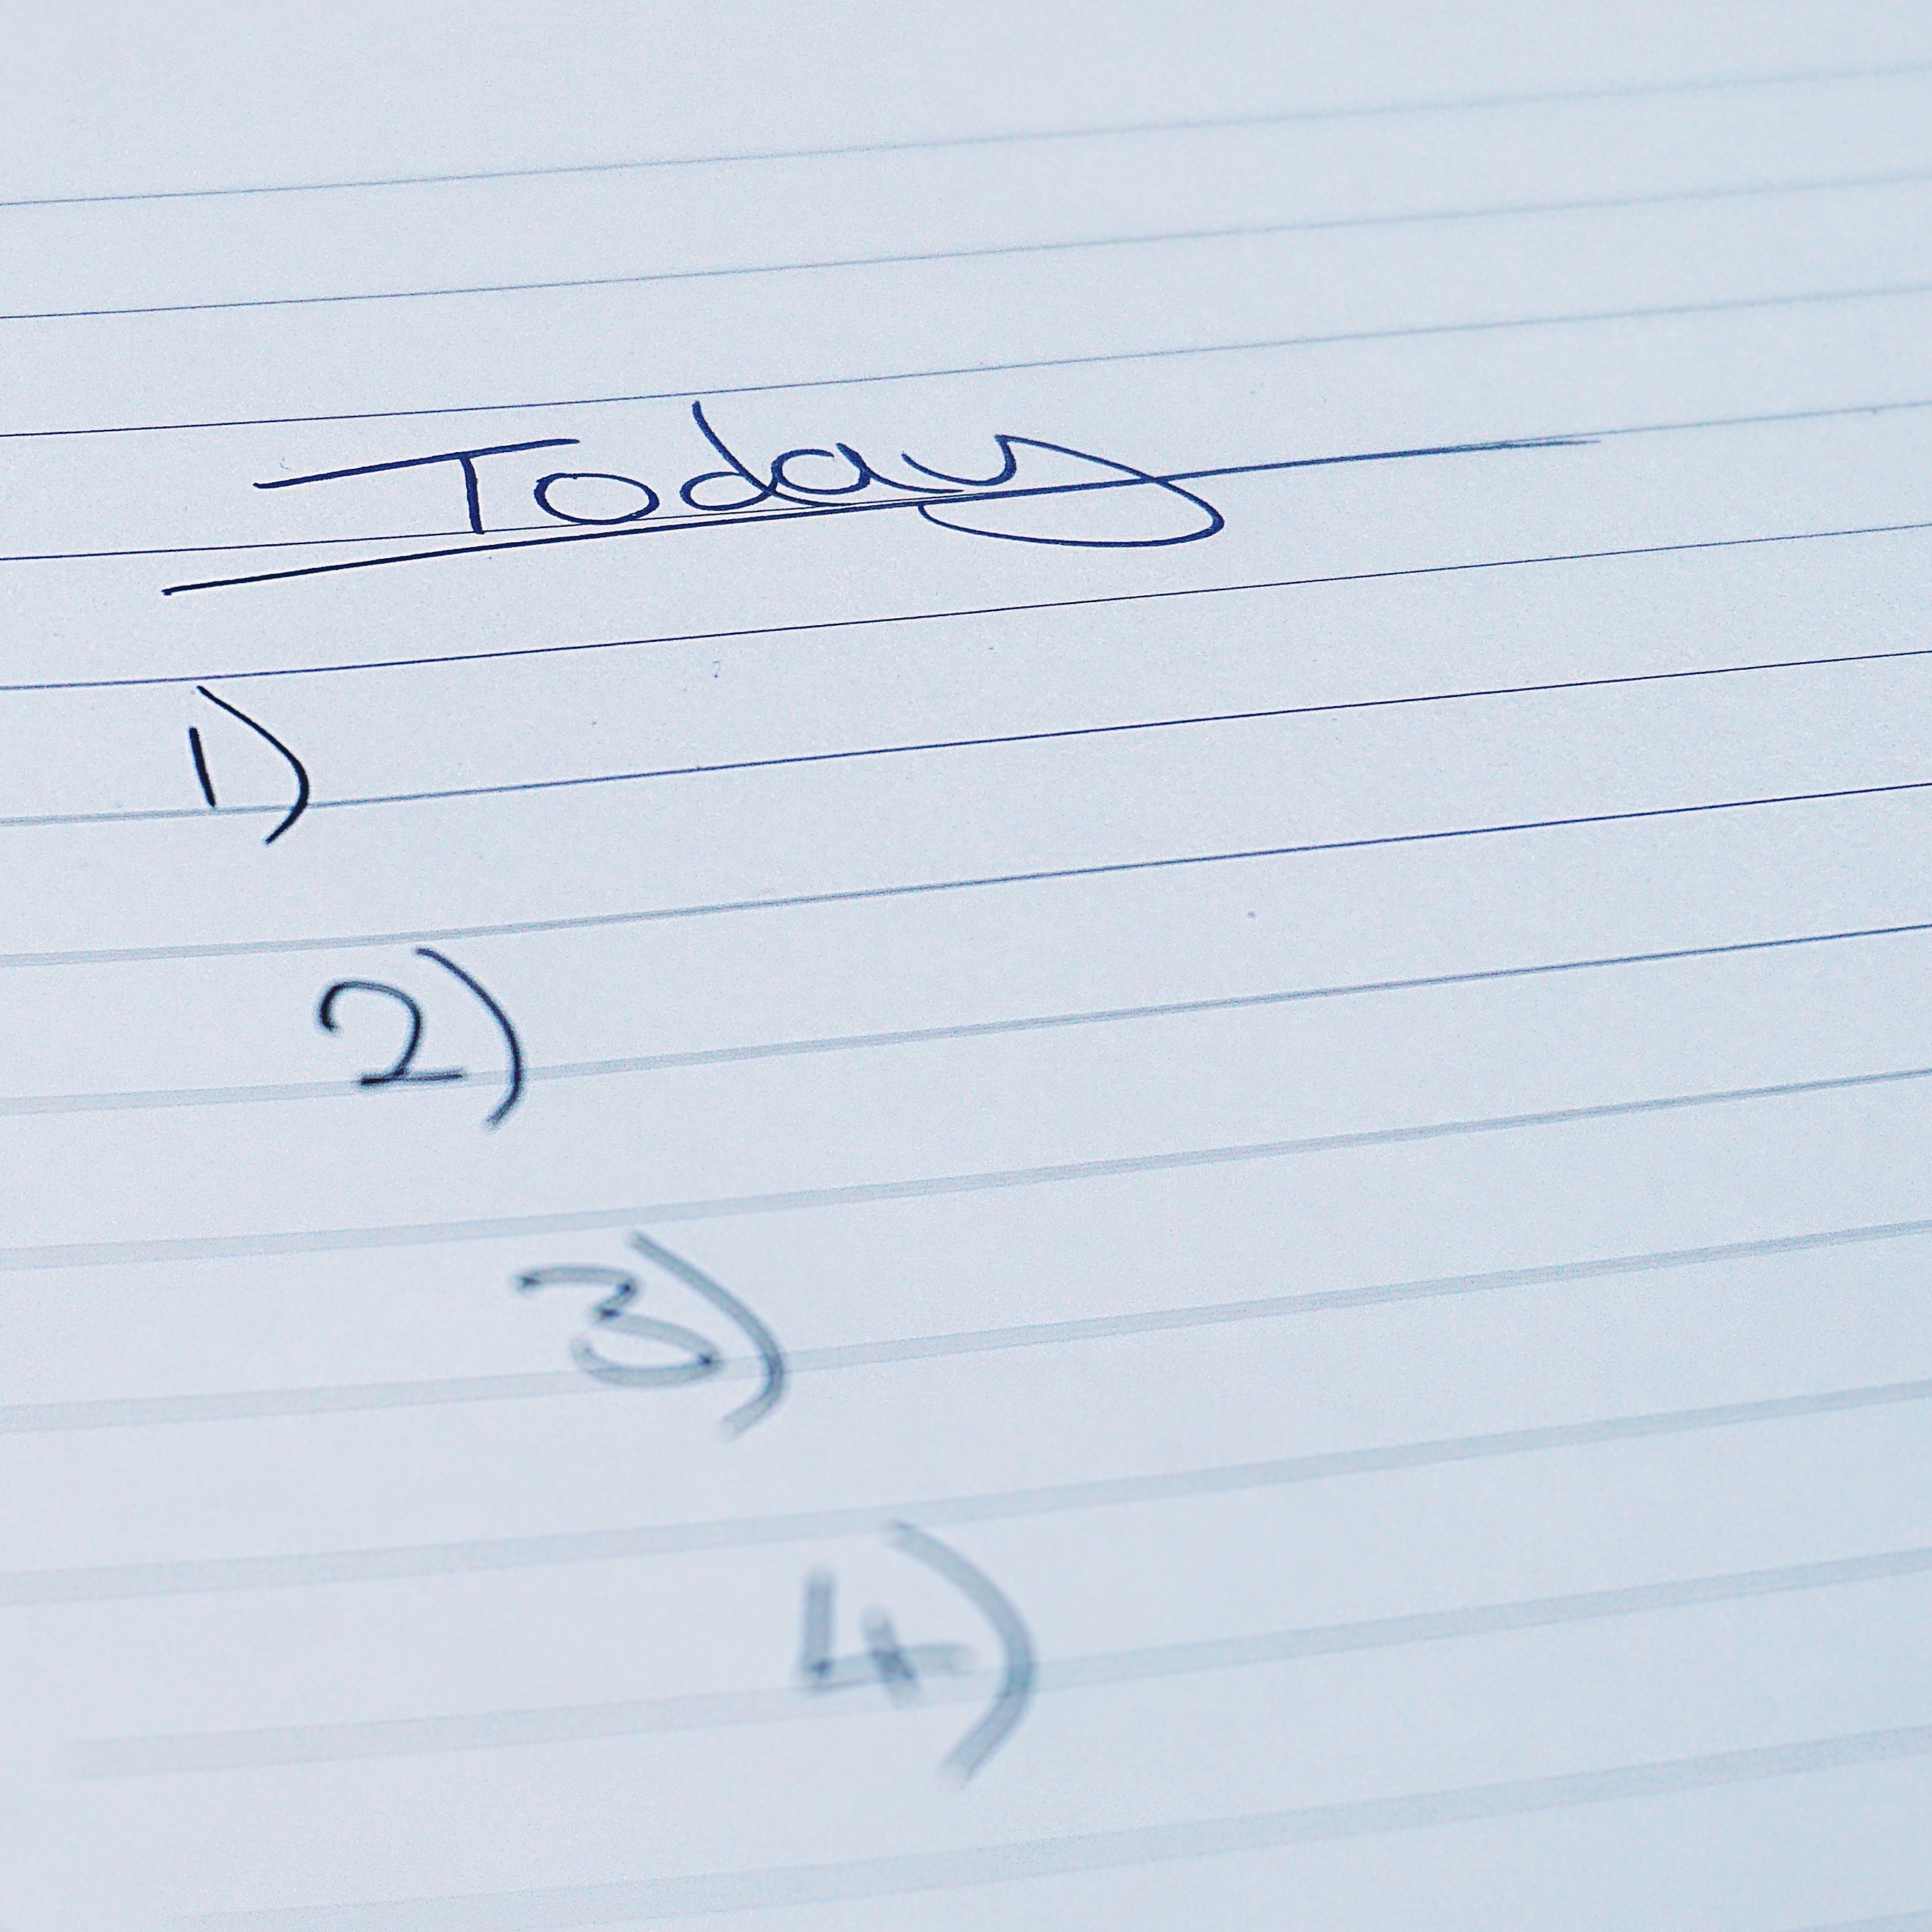 Today
1)
2)
3)
4)